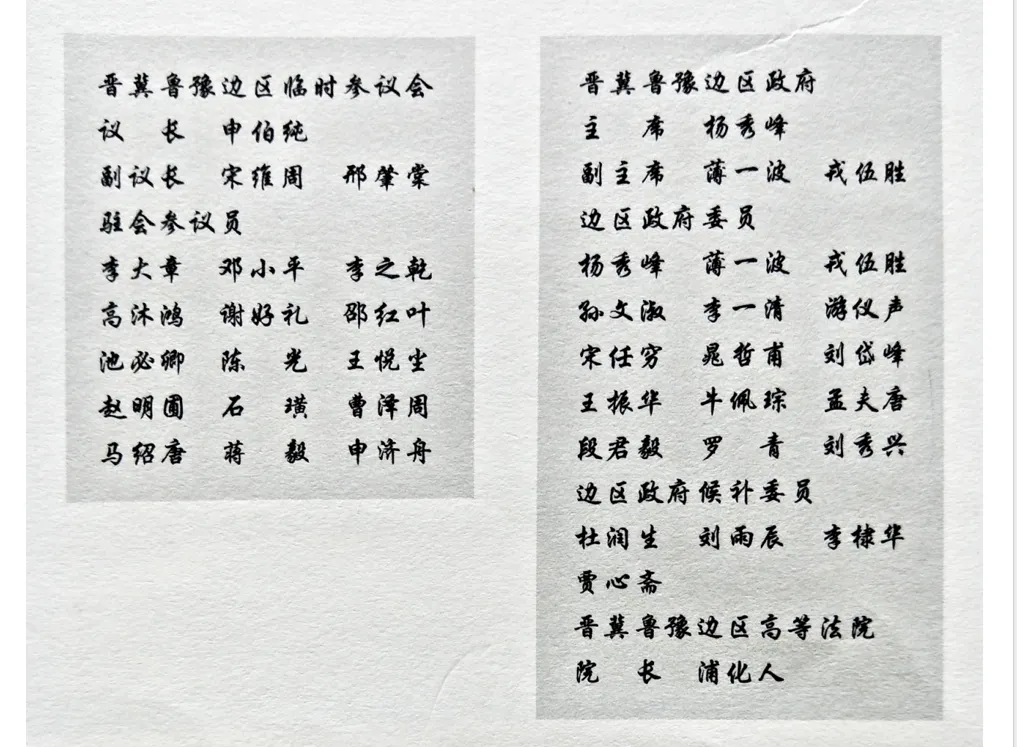 晋冀鲁豫边区临时参议会
议　长　申伯纯
副议长　宋维周　邢肇棠
驻会参议员
李大章　邓小平　李之乾
高沐鸿　谢好礼　邵红叶
池必卿　陈　光　王悦尘
赵明圃　石　璜　曹泽周
马绍唐　蒋　毅　申济舟
晋冀鲁豫边区政府
主　席　杨秀峰
副主席　薄一波　戎伍胜
边区政府委员
杨秀峰　薄一波　戎伍胜
孙文淑　李一清　游仪声
宋任穷　晁哲甫　刘岱峰
王振华　牛佩琮　孟夫唐
段君毅　罗　青　刘秀兴
边区政府候补委员
杜润生　刘雨辰　李棣华
贾心斋
晋冀鲁豫边区高等法院
院　长　浦化人